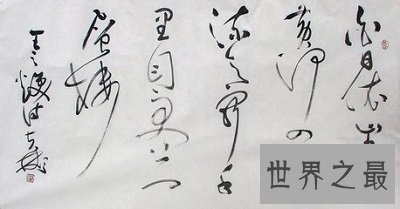 白日依山尽
黄河入
海流欲穷千
里目更上一
层楼
王之涣诗
世界之最